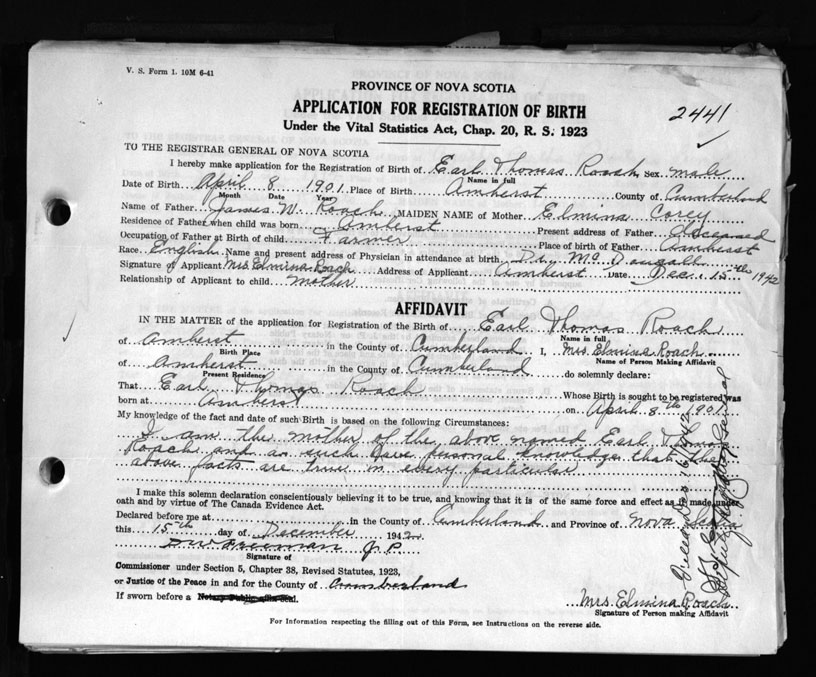 V. S. Form 1. 10M 6-41
PROVINCE OF NOVA SCOTIA
APPLICATION FOR REGISTRATION OF BIRTH
2441
Under the Vital Statistics Act, Chap. 20, R. S. 1923
TO THE REGISTRAR GENERAL OF NOVA SCOTIA
I hereby make application for the Registration of Birth of Earl Thomas Roach Sex male
Name in full
Date of Birth April 8 1901 Place of Birth Amherst County of Cumberland
Month Date Year
Name of Father James W. Roach MAIDEN NAME of Mother Elmina Corey
Residence of Father when child was born Amherst Present address of Father deceased
Occupation of Father at Birth of child Farmer Place of birth of Father Amherst
Race English Name and present address of Physician in attendance at birth Dr. McDougall
Signature of Applicant Mrs Elmina Roach Address of Applicant Amherst Date Dec. 15th 1942
Relationship of Applicant to child mother
AFFIDAVIT
IN THE MATTER of the application for Registration of the Birth of Earl Thomas Roach
Name in full
of Amherst in the County of Cumberland I, Mrs Elmina Roach
Birth Place Name of Person Making Affidavit
of Amherst in the County of Cumberland do solemnly declare:
Present Residence
That Earl Thomas Roach Whose Birth is sought to be registered was
born at Amherst on April 8th 1901
My knowledge of the fact and date of such Birth is based on the following Circumstances:
I am the mother of the above named Earl Thomas
Roach and as such have personal knowledge that the
above facts are true in every particular
I make this solemn declaration conscientiously believing it to be true, and knowing that it is of the same force and effect as if made under
oath and by virtue of The Canada Evidence Act.
Declared before me at in the County of Cumberland and Province of Nova Scotia
this 15th day of December 1942
Freeman J P
Signature of
Commissioner under Section 5, Chapter 38, Revised Statutes, 1923,
or Justice of the Peace in and for the County of Cumberland
If sworn before a Notary Public affix seal.
Mrs Elmina Roach
Signature of Person making Affidavit
For Information respecting the filling out of this Form, see Instructions on the reverse side.
Filed Dec 16, 1942